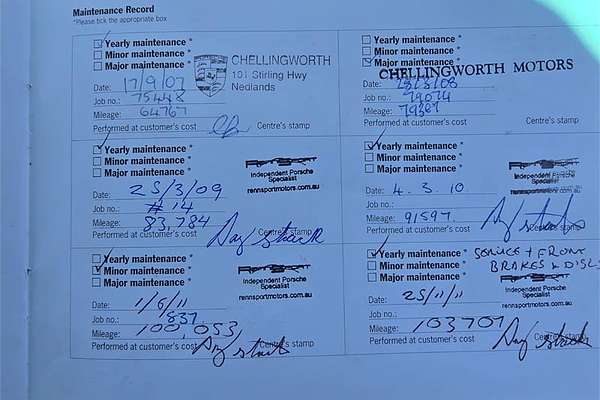 Maintenance Record
*Please tick the appropriate box
Yearly maintenance *
Minor maintenance *
Major maintenance *
CHELLINGWORTH
101 Stirling Hwy
Nedlands
Date: 17/9/07
Job no.: 75448
Mileage: 64767
Performed at customer's cost
Centre's stamp
Yearly maintenance *
Minor maintenance *
Major maintenance *
CHELLINGWORTH MOTORS
Date: 28/3/08
Job no.: 79074
Mileage: 79387
Performed at customer's cost
Centre's stamp
Yearly maintenance *
Minor maintenance *
Major maintenance *
Independent Porsche
Specialist
rennsportmotors.com.au
Date: 25/3/09
Job no.: #14
Mileage: 83,784
Performed at customer's cost
Centre's stamp
Yearly maintenance *
Minor maintenance *
Major maintenance *
Independent Porsche
Specialist
rennsportmotors.com.au
Date: 4.3.10
Job no.:
Mileage: 91597
Performed at customer's cost
Centre's stamp
Yearly maintenance *
Minor maintenance *
Major maintenance *
Independent Porsche
Specialist
rennsportmotors.com.au
Date: 1/6/11
Job no.: 837
Mileage: 100,053
Performed at customer's cost
Centre's stamp
Yearly maintenance * SERVICE + FRONT
Minor maintenance * BRAKES & DISCS
Major maintenance *
Independent Porsche
Specialist
rennsportmotors.com.au
Date: 25/11/11
Job no.:
Mileage: 103707
Performed at customer's cost
Centre's stamp